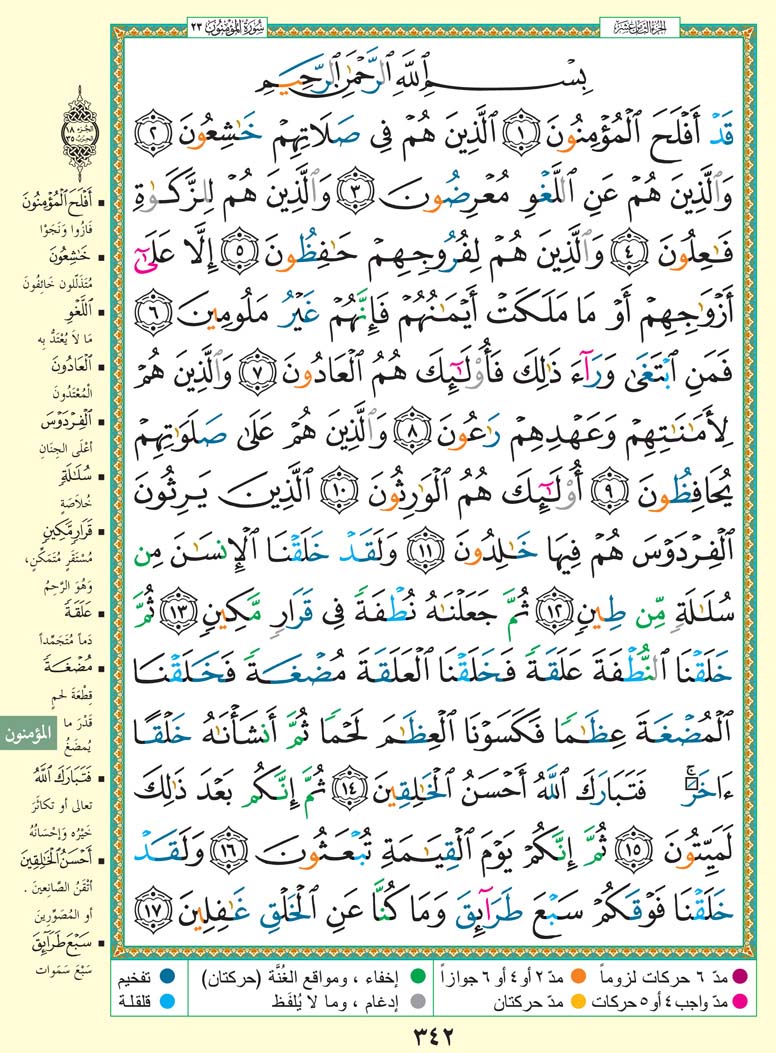 سُورَةُ المُؤْمِنُون ٢٣
الجزء الثامن عشر
بِسْمِ ٱللَّهِ ٱلرَّحْمَٰنِ ٱلرَّحِيمِ
قَدْ أَفْلَحَ ٱلْمُؤْمِنُونَ ١ ٱلَّذِينَ هُمْ فِى صَلَاتِهِمْ خَٰشِعُونَ ٢
وَٱلَّذِينَ هُمْ عَنِ ٱللَّغْوِ مُعْرِضُونَ ٣ وَٱلَّذِينَ هُمْ لِلزَّكَوٰةِ
فَٰعِلُونَ ٤ وَٱلَّذِينَ هُمْ لِفُرُوجِهِمْ حَٰفِظُونَ ٥ إِلَّا عَلَىٰٓ
أَزْوَٰجِهِمْ أَوْ مَا مَلَكَتْ أَيْمَٰنُهُمْ فَإِنَّهُمْ غَيْرُ مَلُومِينَ ٦
فَمَنِ ٱبْتَغَىٰ وَرَآءَ ذَٰلِكَ فَأُو۟لَٰٓئِكَ هُمُ ٱلْعَادُونَ ٧ وَٱلَّذِينَ هُمْ
لِأَمَٰنَٰتِهِمْ وَعَهْدِهِمْ رَٰعُونَ ٨ وَٱلَّذِينَ هُمْ عَلَىٰ صَلَوَٰتِهِمْ
يُحَافِظُونَ ٩ أُو۟لَٰٓئِكَ هُمُ ٱلْوَٰرِثُونَ ١٠ ٱلَّذِينَ يَرِثُونَ
ٱلْفِرْدَوْسَ هُمْ فِيهَا خَٰلِدُونَ ١١ وَلَقَدْ خَلَقْنَا ٱلْإِنسَٰنَ مِن
سُلَٰلَةٍ مِّن طِينٍ ١٢ ثُمَّ جَعَلْنَٰهُ نُطْفَةً فِى قَرَارٍ مَّكِينٍ ١٣ ثُمَّ
خَلَقْنَا ٱلنُّطْفَةَ عَلَقَةً فَخَلَقْنَا ٱلْعَلَقَةَ مُضْغَةً فَخَلَقْنَا
ٱلْمُضْغَةَ عِظَٰمًا فَكَسَوْنَا ٱلْعِظَٰمَ لَحْمًا ثُمَّ أَنشَأْنَٰهُ خَلْقًا
ءَاخَرَ ۚ فَتَبَارَكَ ٱللَّهُ أَحْسَنُ ٱلْخَٰلِقِينَ ١٤ ثُمَّ إِنَّكُم بَعْدَ ذَٰلِكَ
لَمَيِّتُونَ ١٥ ثُمَّ إِنَّكُمْ يَوْمَ ٱلْقِيَٰمَةِ تُبْعَثُونَ ١٦ وَلَقَدْ
خَلَقْنَا فَوْقَكُمْ سَبْعَ طَرَآئِقَ وَمَا كُنَّا عَنِ ٱلْخَلْقِ غَٰفِلِينَ ١٧
الجزء ١٨
الحزب ٣٥
أَفْلَحَ ٱلْمُؤْمِنُونَ
فَازُوا وَنَجَوْا
خَٰشِعُونَ
مُتَذَلِّلُون خَائِفُونَ
ٱللَّغْوِ
مَا لاَ يُعْتَدُّ بِهِ
ٱلْعَادُونَ
الْمُعْتَدُونَ
ٱلْفِرْدَوْسَ
أَعْلَى الجِنَانِ
سُلَٰلَةٍ
خُلَاصَةٍ
قَرَارٍ مَّكِينٍ
مُسْتَقَرٍّ مُتَمَكِّنٍ،
وَهُوَ الرَّحِمُ
عَلَقَةً
دَماً مُتَجَمِّداً
مُضْغَةً
قِطْعَةَ لَحمٍ
قَدْرَ ما
يُمضَغُ
فَتَبَارَكَ ٱللَّهُ
تعالى أو تكاثَرَ
خَيْرُه وَإِحْسَانُهُ
أَحْسَنُ ٱلْخَٰلِقِينَ
أتْقَنُ الصَّانِعينَ .
أو المُصَوِّرين
سَبْعَ طَرَآئِقَ
سَبْعَ سَموات
المؤمنون
مدّ ٦ حركات لزوماً
مدّ ٢ أو ٤ أو ٦ جوازاً
إخفاء ، ومواقع الغُنَّة (حركتان)
تفخيم
مدّ واجب ٤ أو ٥ حركات
مدّ حركتان
إدغام ، وما لا يُلفَظ
قلقلة
٣٤٢